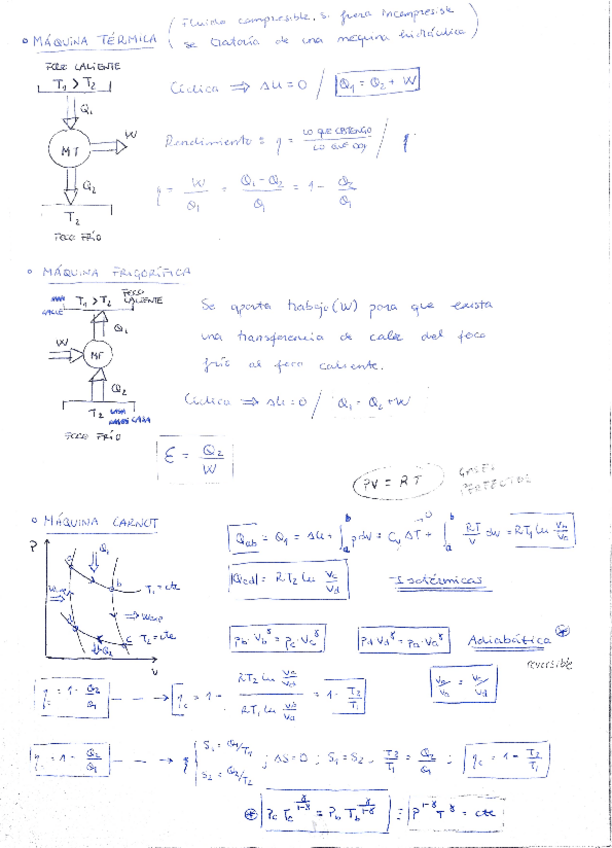 ◦ MÁQUINA TÉRMICA (Fluido compresible, si fuera incompresible
se trataría de una máquina hidráulica)
FOCO CALIENTE
T₁ > T₂
Q₁
MT
W
Q₂
T₂
FOCO FRÍO
Cíclica ⇒ ΔU = 0 / Q₁ = Q₂ + W
Rendimiento = η = LO QUE OBTENGO / LO QUE DOY /
η = W/Q₁ = (Q₁ - Q₂)/Q₁ = 1 - Q₂/Q₁
◦ MÁQUINA FRIGORÍFICA
T₁ > T₂ FOCO CALIENTE
CALLE
Q₁
W
MF
Q₂
T₂ CASA
FOCO FRÍO
Se aporta trabajo (W) para que exista
una transferencia de calor del foco
frío al foco caliente.
Cíclica ⇒ ΔU = 0 / Q₁ = Q₂ + W
ε = Q₂/W
PV = RT GASES PERFECTOS
◦ MÁQUINA CARNOT
P
a
Q₁
b
T₁ = cte
Wexp
T₂ = cte
d
c
Q₂
V
Qab = Q₁ = ΔU + ∫ₐᵇ pdv = Cv ΔT + ∫ₐᵇ RT/V dv = RT₁ Ln Vb/Va
|Qcd| = RT₂ Ln Vc/Vd
Isotérmicas
Pb · Vb^γ = Pc · Vc^γ
Pd Vd^γ = Pa · Va^γ
Adiabática ⊛
reversible
η = 1 - Q₂/Q₁ - - → ηc = 1 - = 1 - T₂/T₁
η = 1 - Q₂/Q₁ - - → { S₁ = Q₁/T₁ S₂ = Q₂/T₂ ; ΔS = 0 ; S₁ = S₂ ; T₂/T₁ = Q₂/Q₁ ; ηc = 1 - T₂/T₁
⊛ Pc Tc^(γ/1-γ) = Pb Tb^(γ/1-γ) ≡ P^(1-γ) T^γ = cte